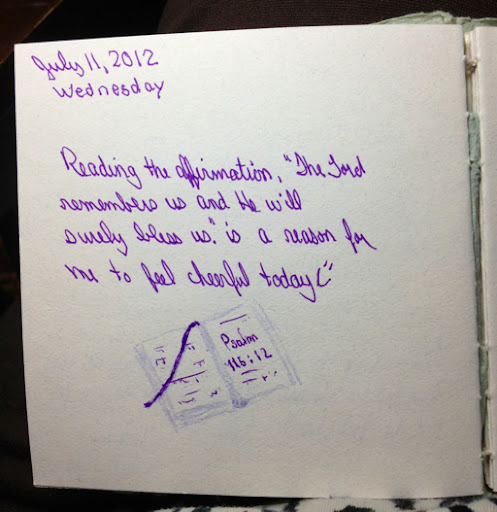 July 11, 2012
Wednesday
Reading the affirmation, "The Lord
remembers us and He will
surely bless us." is a reason for
me to feel cheerful today(:
Psalm
116:12